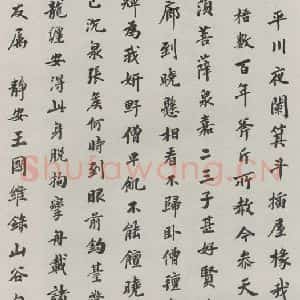 平川夜闌箕斗插屋椽我
梧數百年斧斤所赦今參天
須菩薩泉嘉二三子甚好賢
廊到曉懸相看不歸卧僧氈
輝為我妍野僧早飢不能饘曉
已沉泉張侯何時到眼前釣臺驚
龍纏安得此身脫拘攣舟載諸
友屬 靜安王國維錄山谷
Shufawang.CN